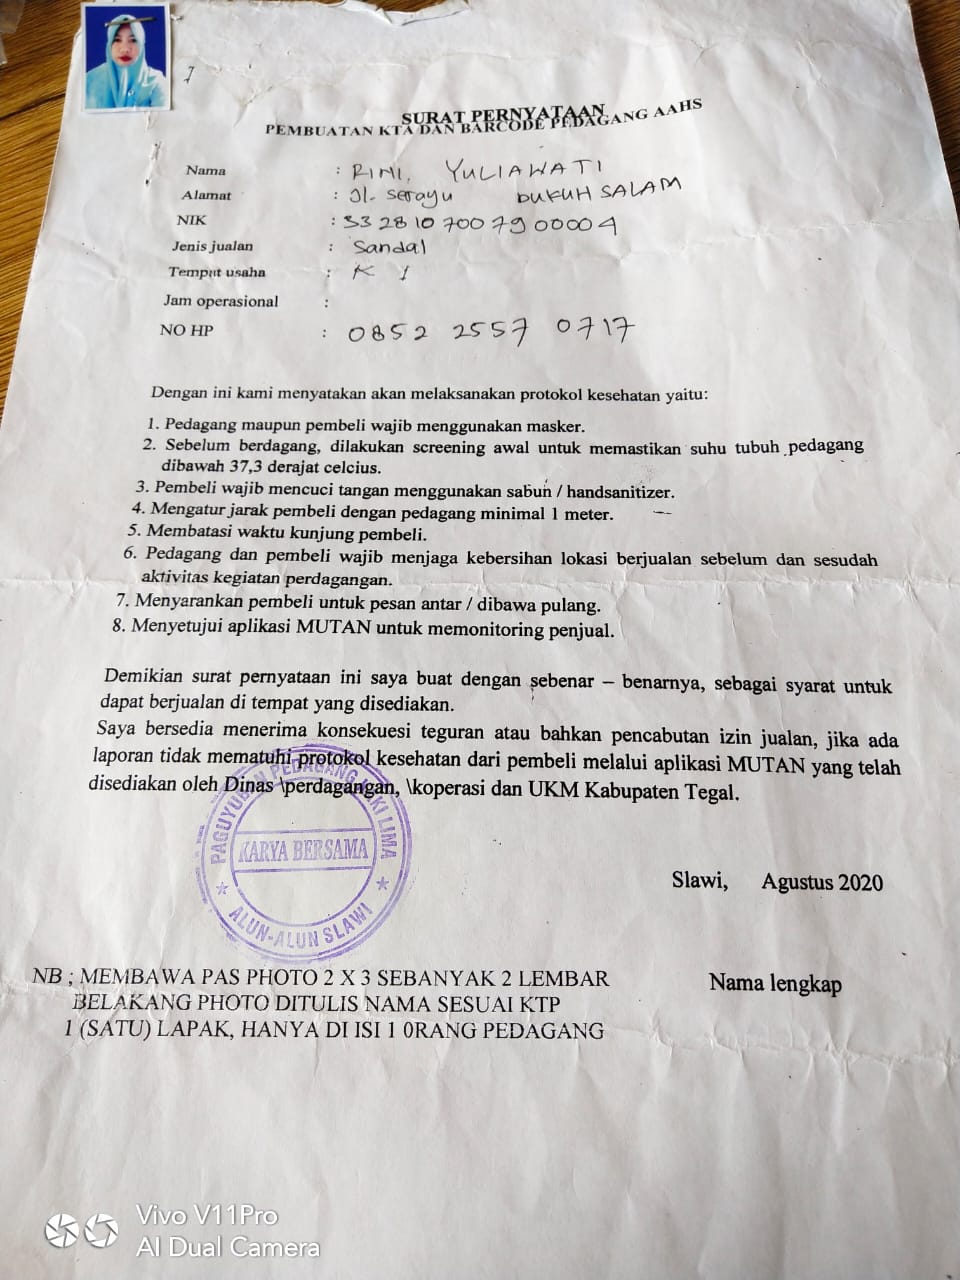 SURAT PERNYATAAN
PEMBUATAN KTA DAN BARCODE PEDAGANG AAHS
Nama : RINI YULIAWATI
Alamat : Jl. Serayu DUKUH SALAM
NIK : 3328107007900004
Jenis jualan : Sandal
Tempat usaha : K 1
Jam operasional :
NO HP : 0852 2557 0717
Dengan ini kami menyatakan akan melaksanakan protokol kesehatan yaitu:
1. Pedagang maupun pembeli wajib menggunakan masker.
2. Sebelum berdagang, dilakukan screening awal untuk memastikan suhu tubuh pedagang
dibawah 37,3 derajat celcius.
3. Pembeli wajib mencuci tangan menggunakan sabun / handsanitizer.
4. Mengatur jarak pembeli dengan pedagang minimal 1 meter.
5. Membatasi waktu kunjung pembeli.
6. Pedagang dan pembeli wajib menjaga kebersihan lokasi berjualan sebelum dan sesudah
aktivitas kegiatan perdagangan.
7. Menyarankan pembeli untuk pesan antar / dibawa pulang.
8. Menyetujui aplikasi MUTAN untuk memonitoring penjual.
Demikian surat pernyataan ini saya buat dengan sebenar – benarnya, sebagai syarat untuk
dapat berjualan di tempat yang disediakan.
Saya bersedia menerima konsekuesi teguran atau bahkan pencabutan izin jualan, jika ada
laporan tidak mematuhi protokol kesehatan dari pembeli melalui aplikasi MUTAN yang telah
disediakan oleh Dinas \perdagangan, \koperasi dan UKM Kabupaten Tegal.
PAGUYUBAN PEDAGANG KAKI LIMA
KARYA BERSAMA
ALUN-ALUN SLAWI
Slawi, Agustus 2020
Nama lengkap
NB ; MEMBAWA PAS PHOTO 2 X 3 SEBANYAK 2 LEMBAR
BELAKANG PHOTO DITULIS NAMA SESUAI KTP
1 (SATU) LAPAK, HANYA DI ISI 1 0RANG PEDAGANG
Vivo V11Pro
AI Dual Camera